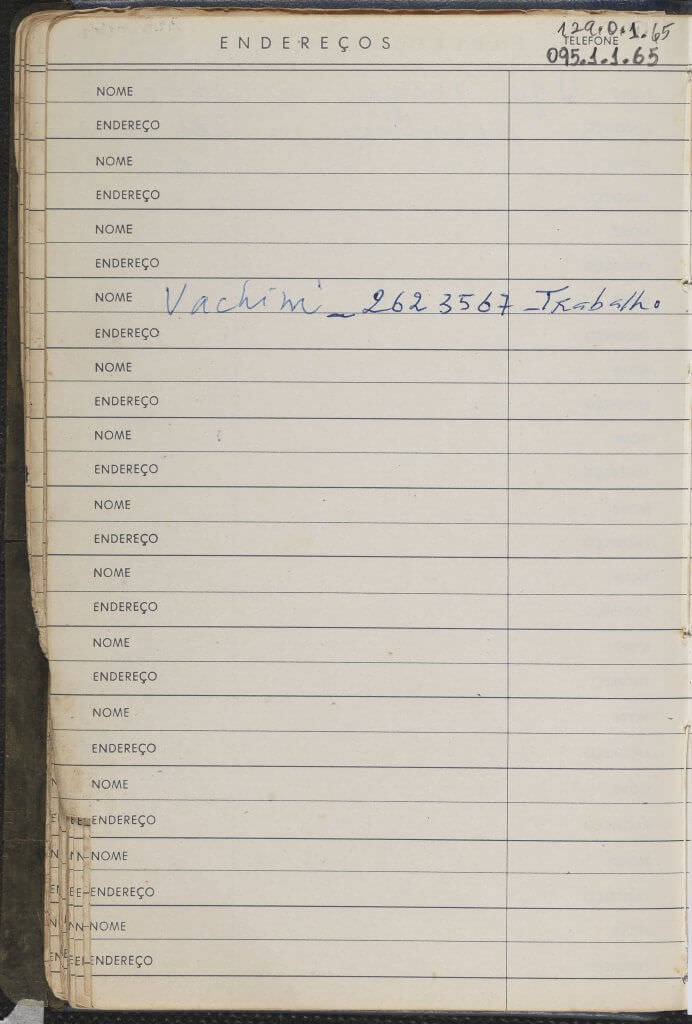 129.0.1.65
ENDEREÇOS TELEFONE
095.1.1.65
NOME
ENDEREÇO
NOME
ENDEREÇO
NOME
ENDEREÇO
NOME Vachimi _ 262 3567 _ Trabalho
ENDEREÇO
NOME
ENDEREÇO
NOME
ENDEREÇO
NOME
ENDEREÇO
NOME
ENDEREÇO
NOME
ENDEREÇO
NOME
ENDEREÇO
NOME
ENDEREÇO
NOME
ENDEREÇO
NOME
ENDEREÇO